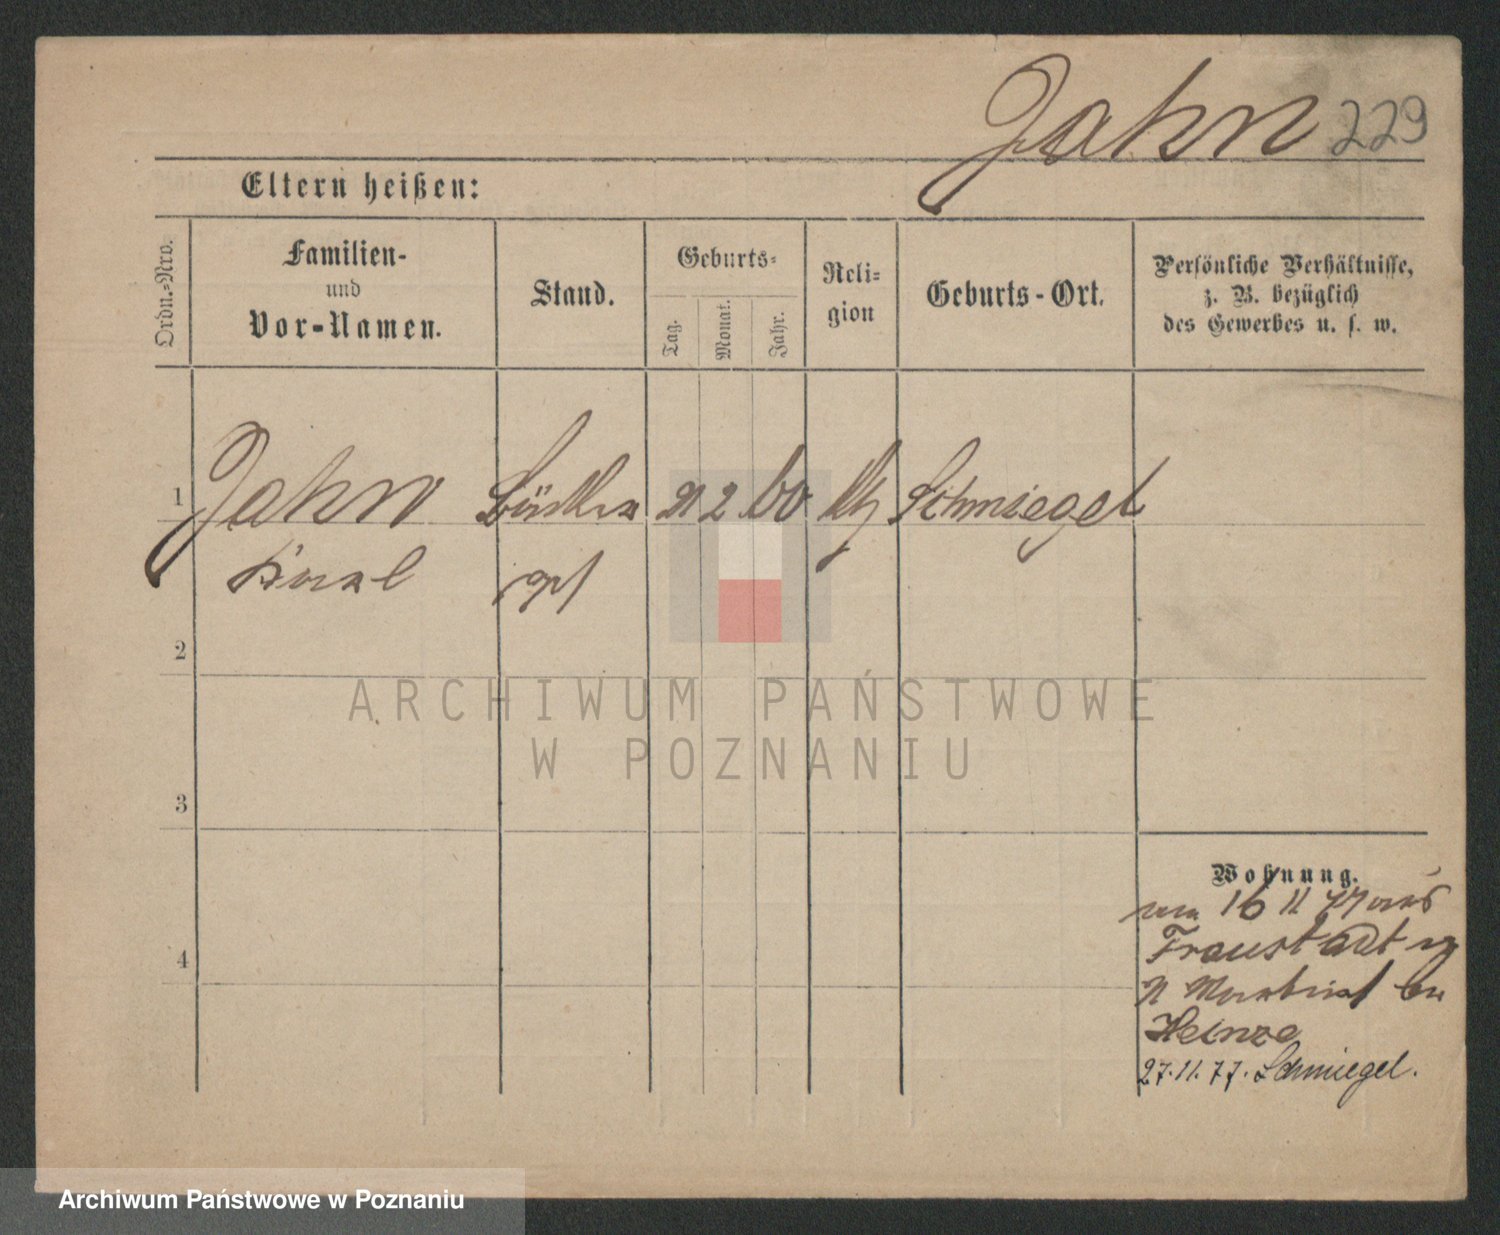 Jahn 229
Eltern heißen:
Ordn.-Nro.
Familien-
und
Vor-Namen.
Stand.
Geburts-
Tag.
Monat.
Jahr.
Reli-
gion
Geburts-Ort.
Persönliche Verhältnisse,
z. B. bezüglich
des Gewerbes u. s. w.
1 Jahn 2 60 Schmiegel
Karl
2
3
4
Wohnung.
16 11 77 aus
Fraustadt
Heinze
27.11.77. Schmiegel.
ARCHIWUM PAŃSTWOWE
W POZNANIU
Archiwum Państwowe w Poznaniu